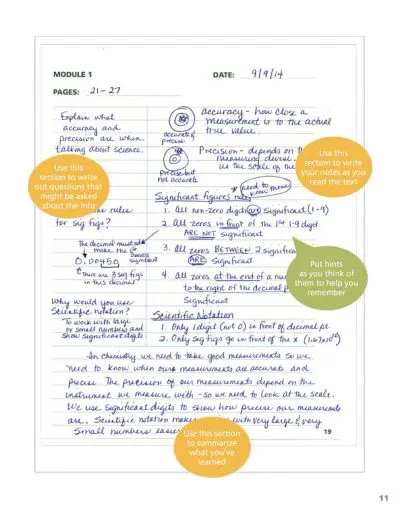 MODULE 1
DATE: 9/9/14
PAGES: 21-27
Explain what
accuracy and
precision are when
talking about science.
accurate &
precise
precise but
not accurate
accuracy - how close a
measurement is to the actual
true value.
Precision - depends on
measuring
is the scale of the
Use this
section to write
out questions that
might be asked
about the info
Use this
section to write
your notes as you
read the text
need to know
Significant figures rules
the rules
for sig figs?
1. All non-zero digits are significant (1-9)
2. All zeros in front of the 1st 1-9 digit
ARE NOT significant
3. All zeros BETWEEN 2
ARE significant
4. All zeros at the end of a
to the right of the decimal
Significant
The decimal
make the
significant
0.00450
there are 3 sig figs
in this decimal
Put hints
as you think of
them to help you
remember
Why would you use
Scientific notation?
To work with large
or small numbers and
show significant digits
Scientific Notation
1. Only 1 digit (not 0) in front of decimal pt
2. Only sig figs go in front of the x
In chemistry we need to take good measurements so we
need to know when our measurements are accurate and
precise. The precision of our measurements depend on the
instrument we measure with - so we need to look at the scale.
We use significant digits to show how precise our measurements
are. Scientific notation makes with very large & very
Small numbers easier
Use this section
to summarize
what you've
learned
19
11